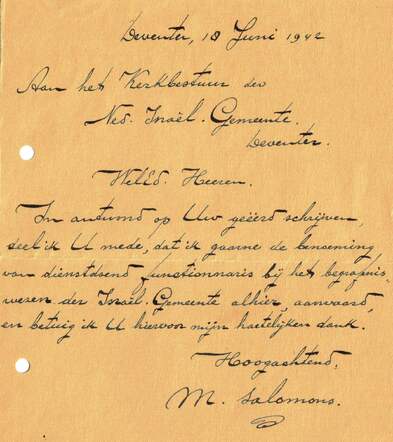 Deventer, 18 Juni 1942
Aan het Kerkbestuur der
Ned. Israël. Gemeente.
Deventer.
WelEd. Heeren.
In antwoord op Uw geëerd schrijven,
deel ik U mede, dat ik gaarne de benoeming
van dienstdoend functionnaris bij het begrafenis-
wezen der Israël. Gemeente alhier, aanvaard,
en betuig ik U hiervoor mijn hartelijken dank.
Hoogachtend,
M. Salomons.